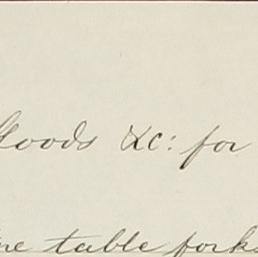 Goods &c: for
table forks